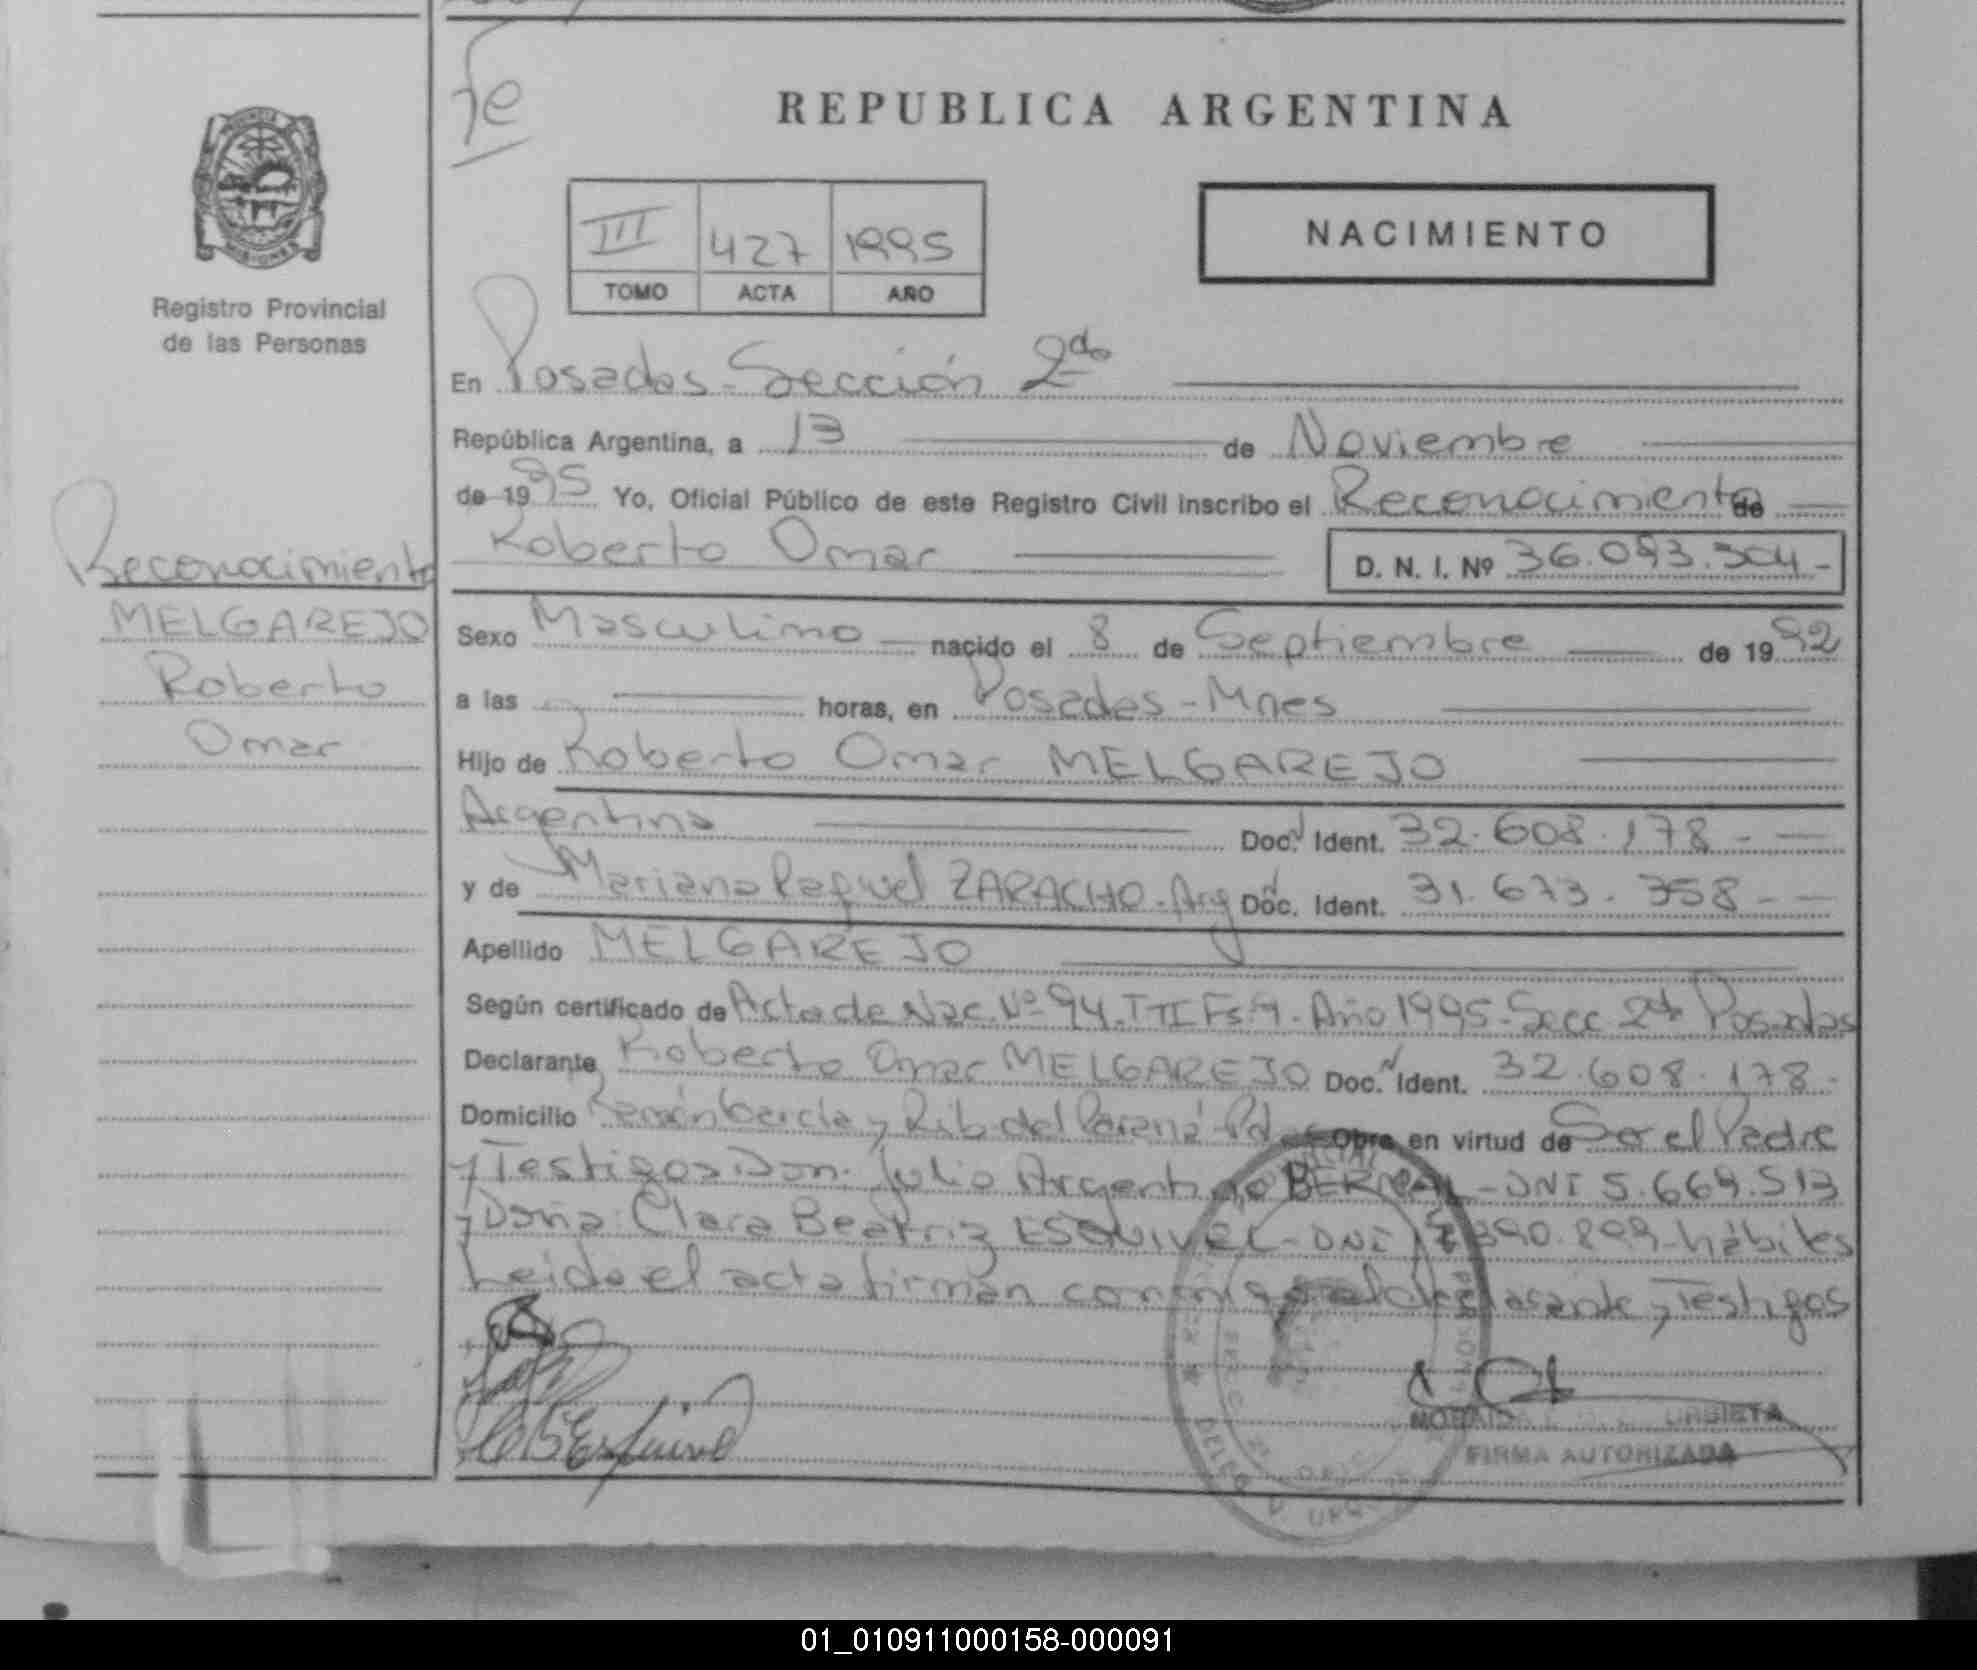 REPUBLICA ARGENTINA
NACIMIENTO
III 427 1995
TOMO ACTA AÑO
Registro Provincial
de las Personas
Reconocimiento
MELGAREJO
Roberto
Omar
En Posadas-Sección 2da
República Argentina, a 13 de Noviembre
de 1995 Yo, Oficial Público de este Registro Civil inscribo el Reconocimiento de
Roberto Omar D. N. I. Nº 36.093.304-
Sexo Masculino nacido el 8 de Septiembre de 1992
a las horas, en Posadas-Mnes
Hijo de Roberto Omar MELGAREJO
Argentino Doc. Ident. 32.608.178-
y de Mariana Raquel ZARACHO-Arg Doc. Ident. 31.673.358--
Apellido MELGAREJO
Según certificado de Acta de Nac. Nº 94. Año 1995-Secc 2da Posadas
Declarante Roberto Omar MELGAREJO Doc. Ident. 32.608.178-
Domicilio Ramón García y Rib. del Paraná-Pdas Obra en virtud de Ser el Padre
y Testigos Don: Julio Argentino BERNAL-DNI 5.669.513
y Doña: Clara Beatriz ESQUIVEL-DNI 390.899-hábiles
Leida el acta firman conmigo el declarante y Testigos
URBIETA
FIRMA AUTORIZADA
01_010911000158-000091